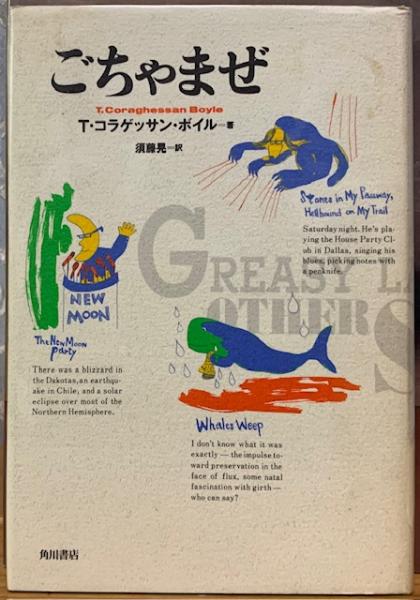 ごちゃまぜ
T. Coraghessan Boyle
T・コラゲッサン・ボイル—著
須藤晃—訳
Stones in My Passway,
Hellhound on My Trail
Saturday night. He's pla-
ying the House Party Cl-
ub in Dallas, singing his
blues, picking notes with
a penknife.
GREASY L
OTHER S
NEW
MOON
The New Moon
Party
There was a blizzard in
the Dakotas, an earthqu-
ake in Chile, and a solar
eclipse over most of the
Northern Hemisphere.
Whales Weep
I don't know what it was
exactly — the impulse to-
ward preservation in the
face of flux, some natal
fascination with girth —
who can say?
角川書店